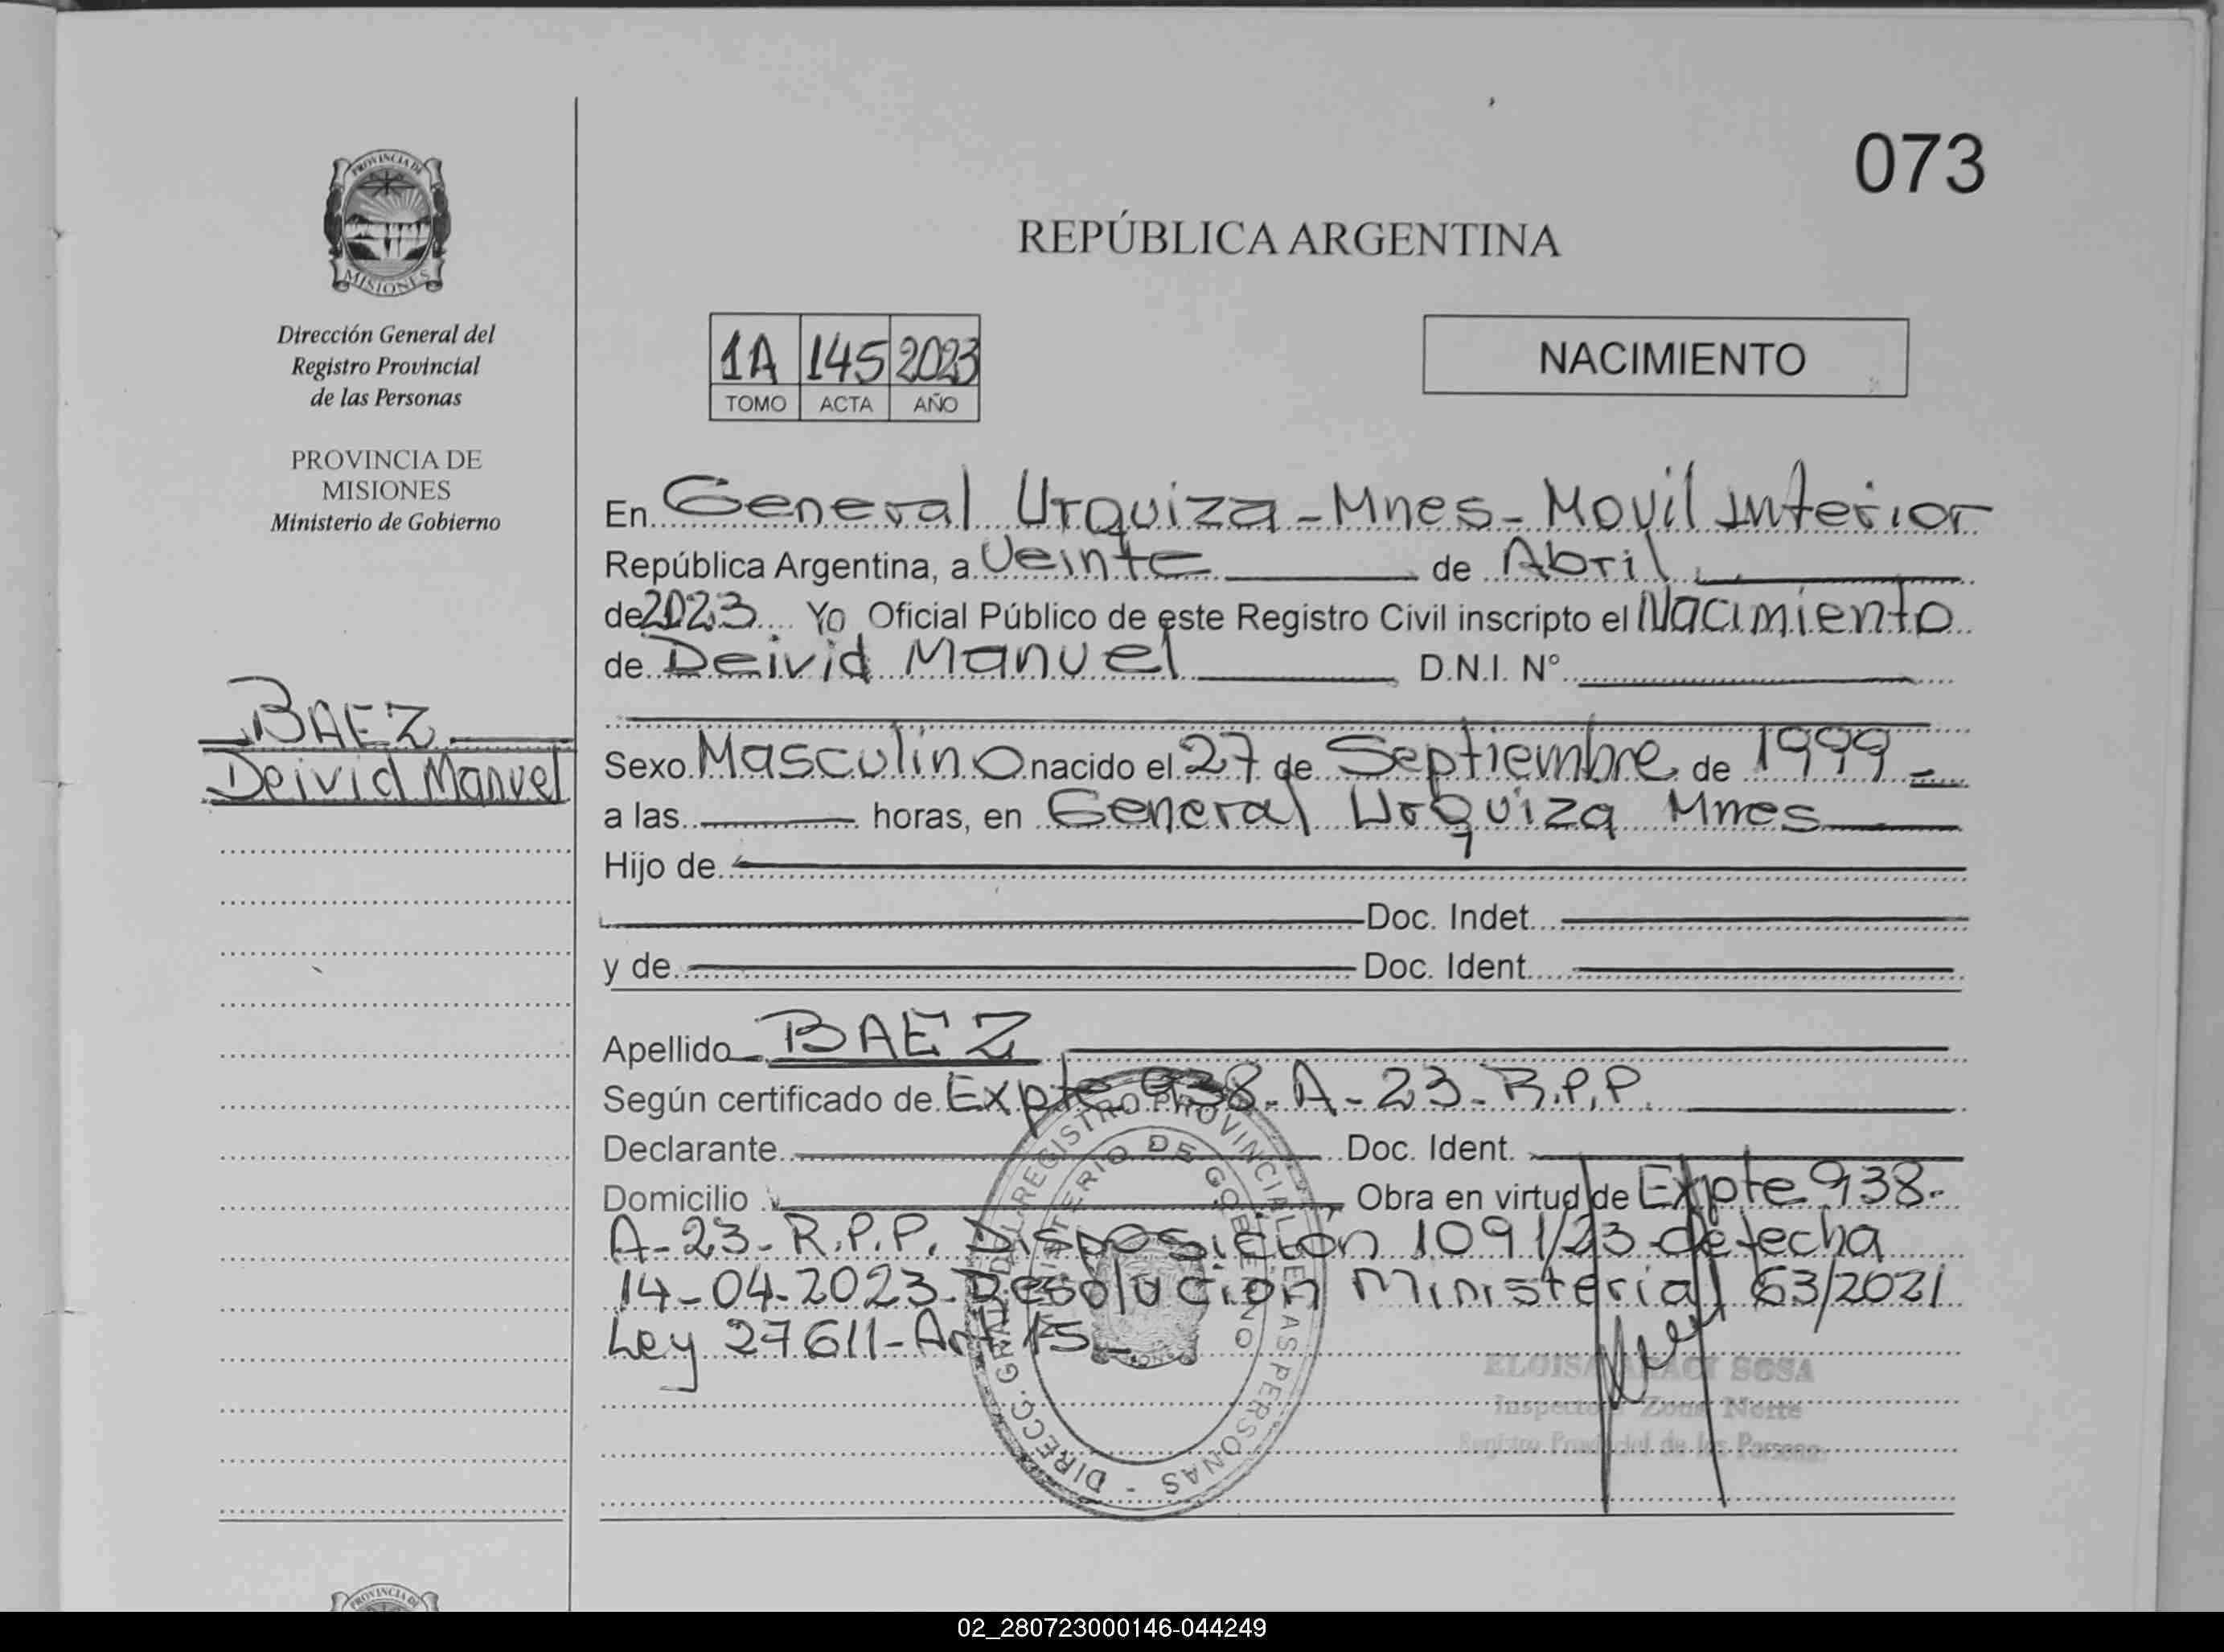 073
PROVINCIA DE
MISIONES
Dirección General del
Registro Provincial
de las Personas
PROVINCIA DE
MISIONES
Ministerio de Gobierno
BAEZ
Deivid Manuel
REPÚBLICA ARGENTINA
1A 145 2023
TOMO ACTA AÑO
NACIMIENTO
En General Urquiza - Mnes - Movil Interior
República Argentina, a Veinte de Abril
de 2023 Yo Oficial Público de este Registro Civil inscripto el Nacimiento
de Deivid Manuel D.N.I. N°
Sexo Masculino nacido el 27 de Septiembre de 1999
a las horas, en General Urquiza Mnes
Hijo de
Doc. Indet.
y de Doc. Ident.
Apellido BAEZ
Según certificado de Expte 938-A-23-R.P.P.
Declarante Doc. Ident.
Domicilio Obra en virtud de Expte 938-
A-23-R.P.P. Disposición 1091/23 de fecha
14-04-2023-Resolución Ministerial 63/2021
Ley 27611-Art 15-
DIRECC. GRAL. DEL REGISTRO PROVINCIAL DE LAS PERSONAS -
MINISTERIO DE GOBIERNO
ELOISA ARACI SOSA
Inspectora Zona Norte
Registro Provincial de las Personas
PROVINCIA DE
02_280723000146-044249